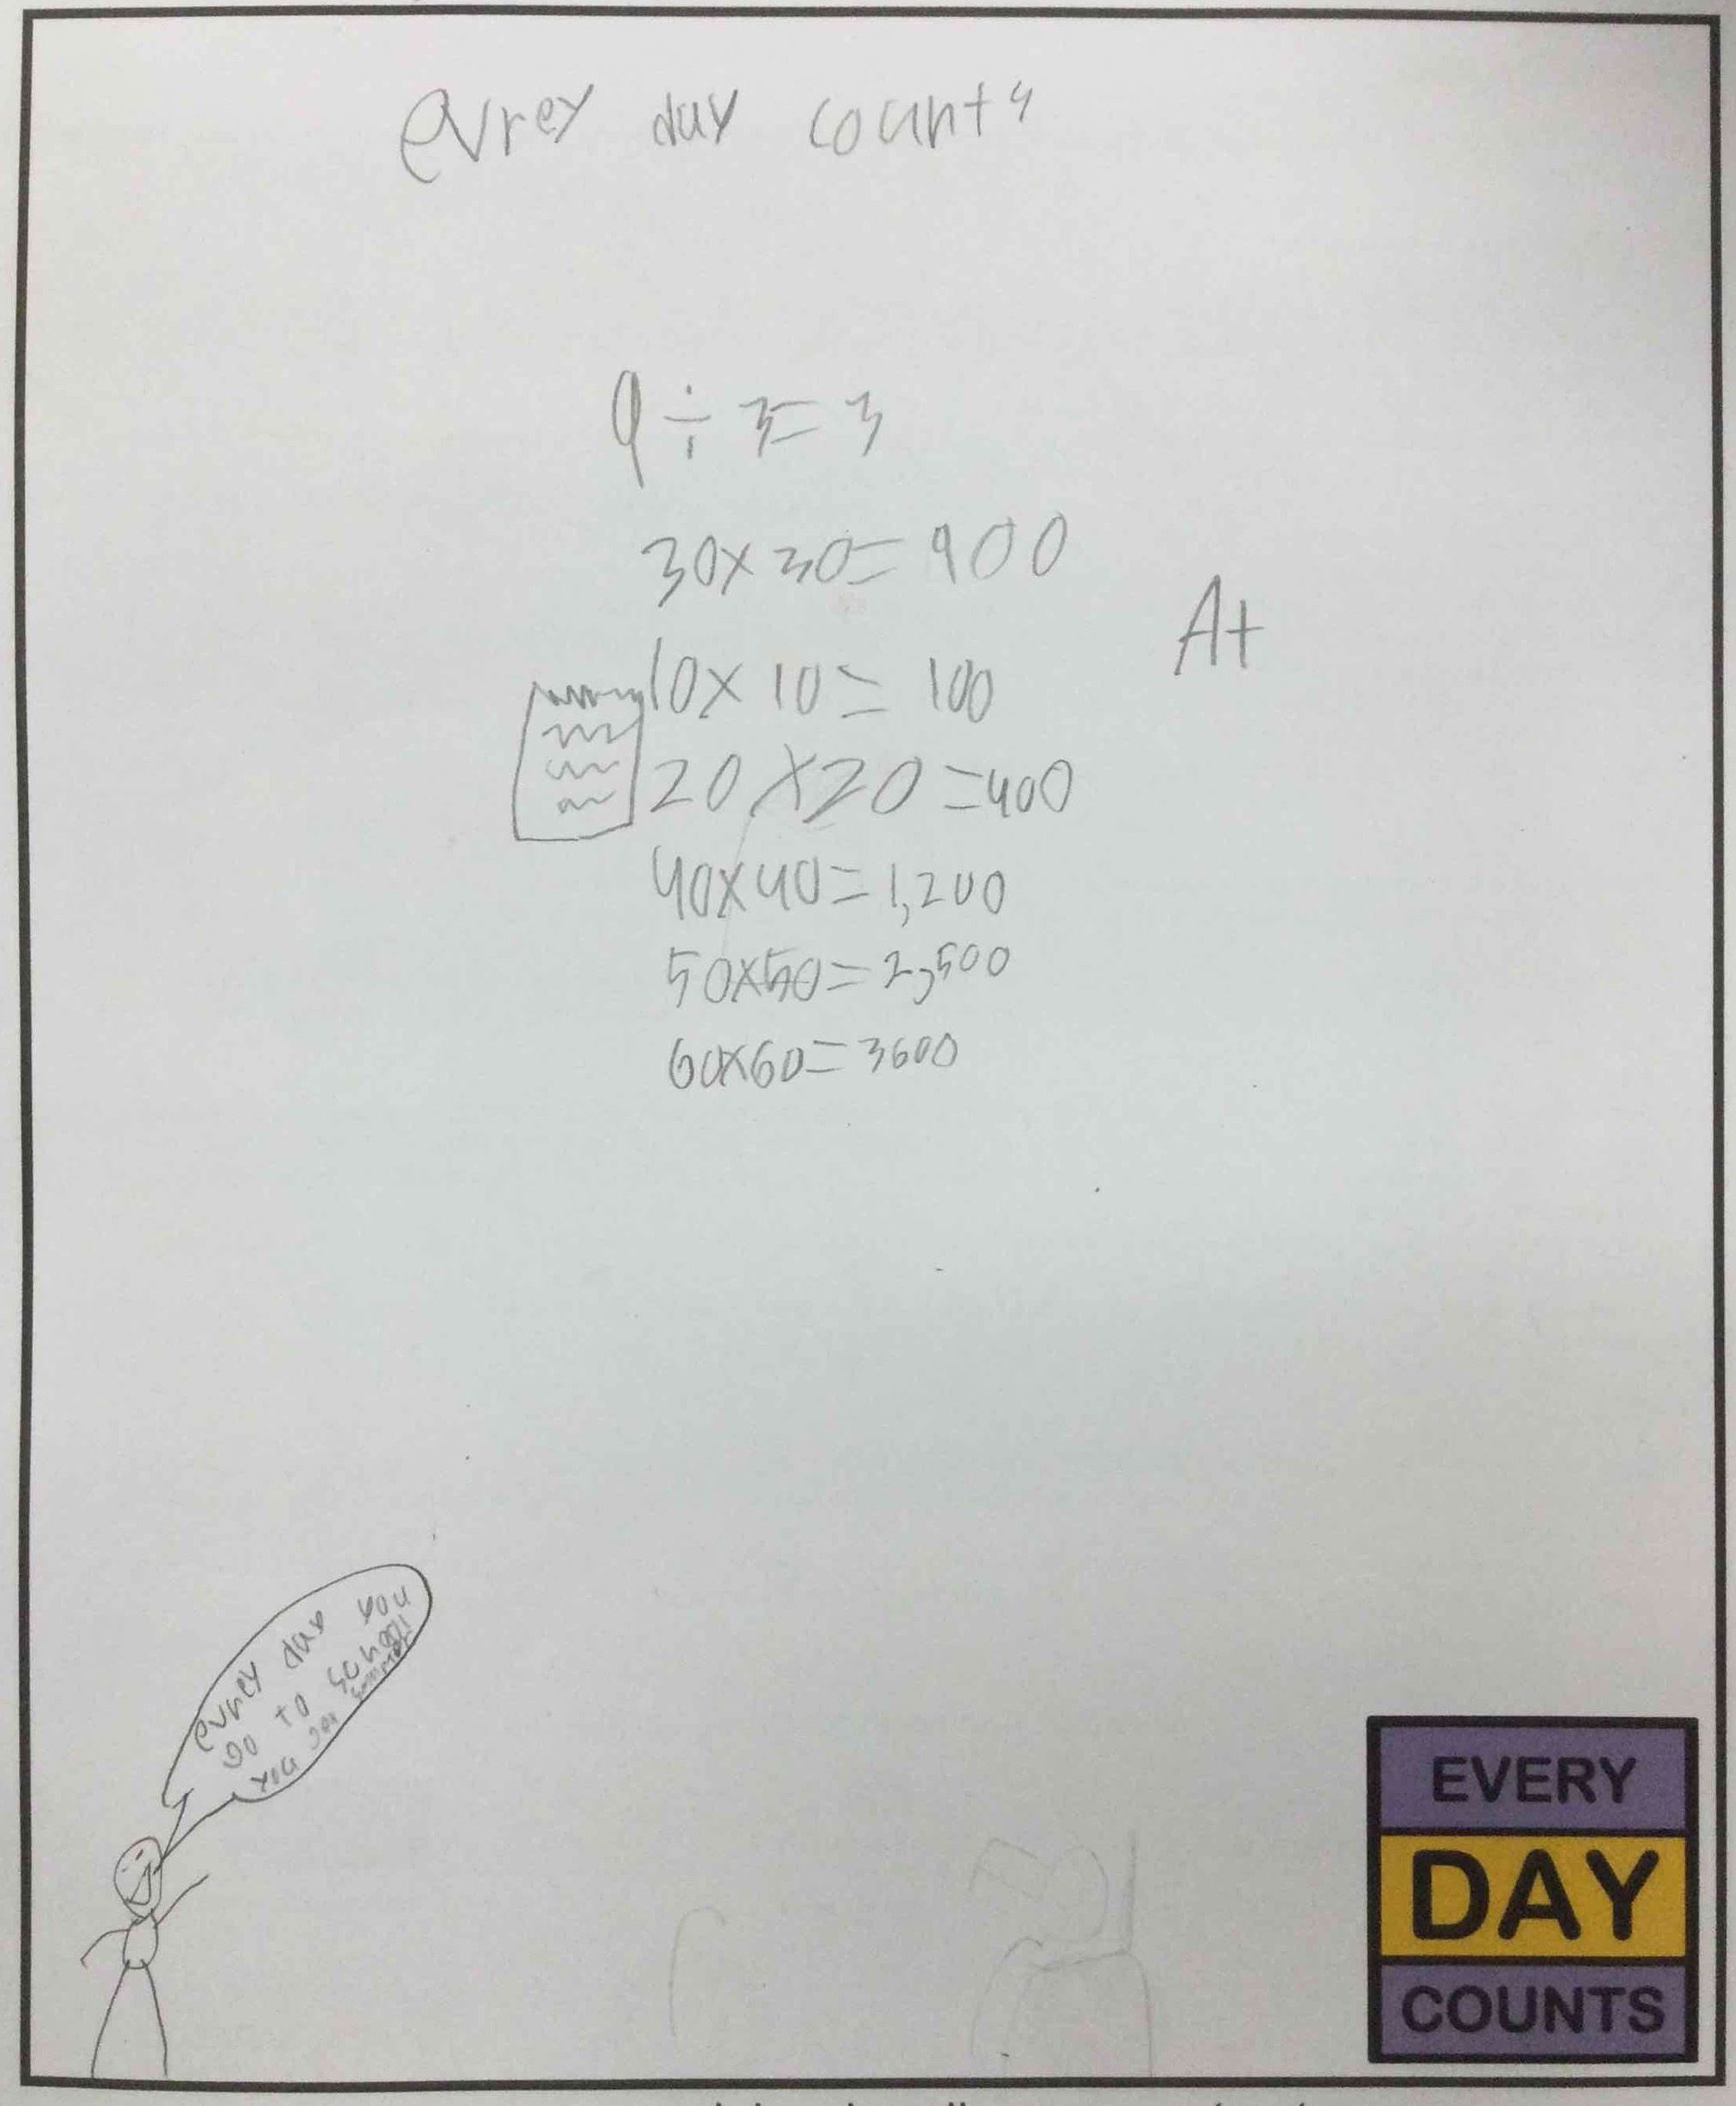 evrey day counts
9 ÷ 3 = 3
30 x 30 = 900
A+
10 x 10 = 100
20 x 20 = 400
40 x 40 = 1,200
50 x 50 = 2,500
60 x 60 = 3600
evrey day you
go to school
you get smarter
EVERY
DAY
COUNTS